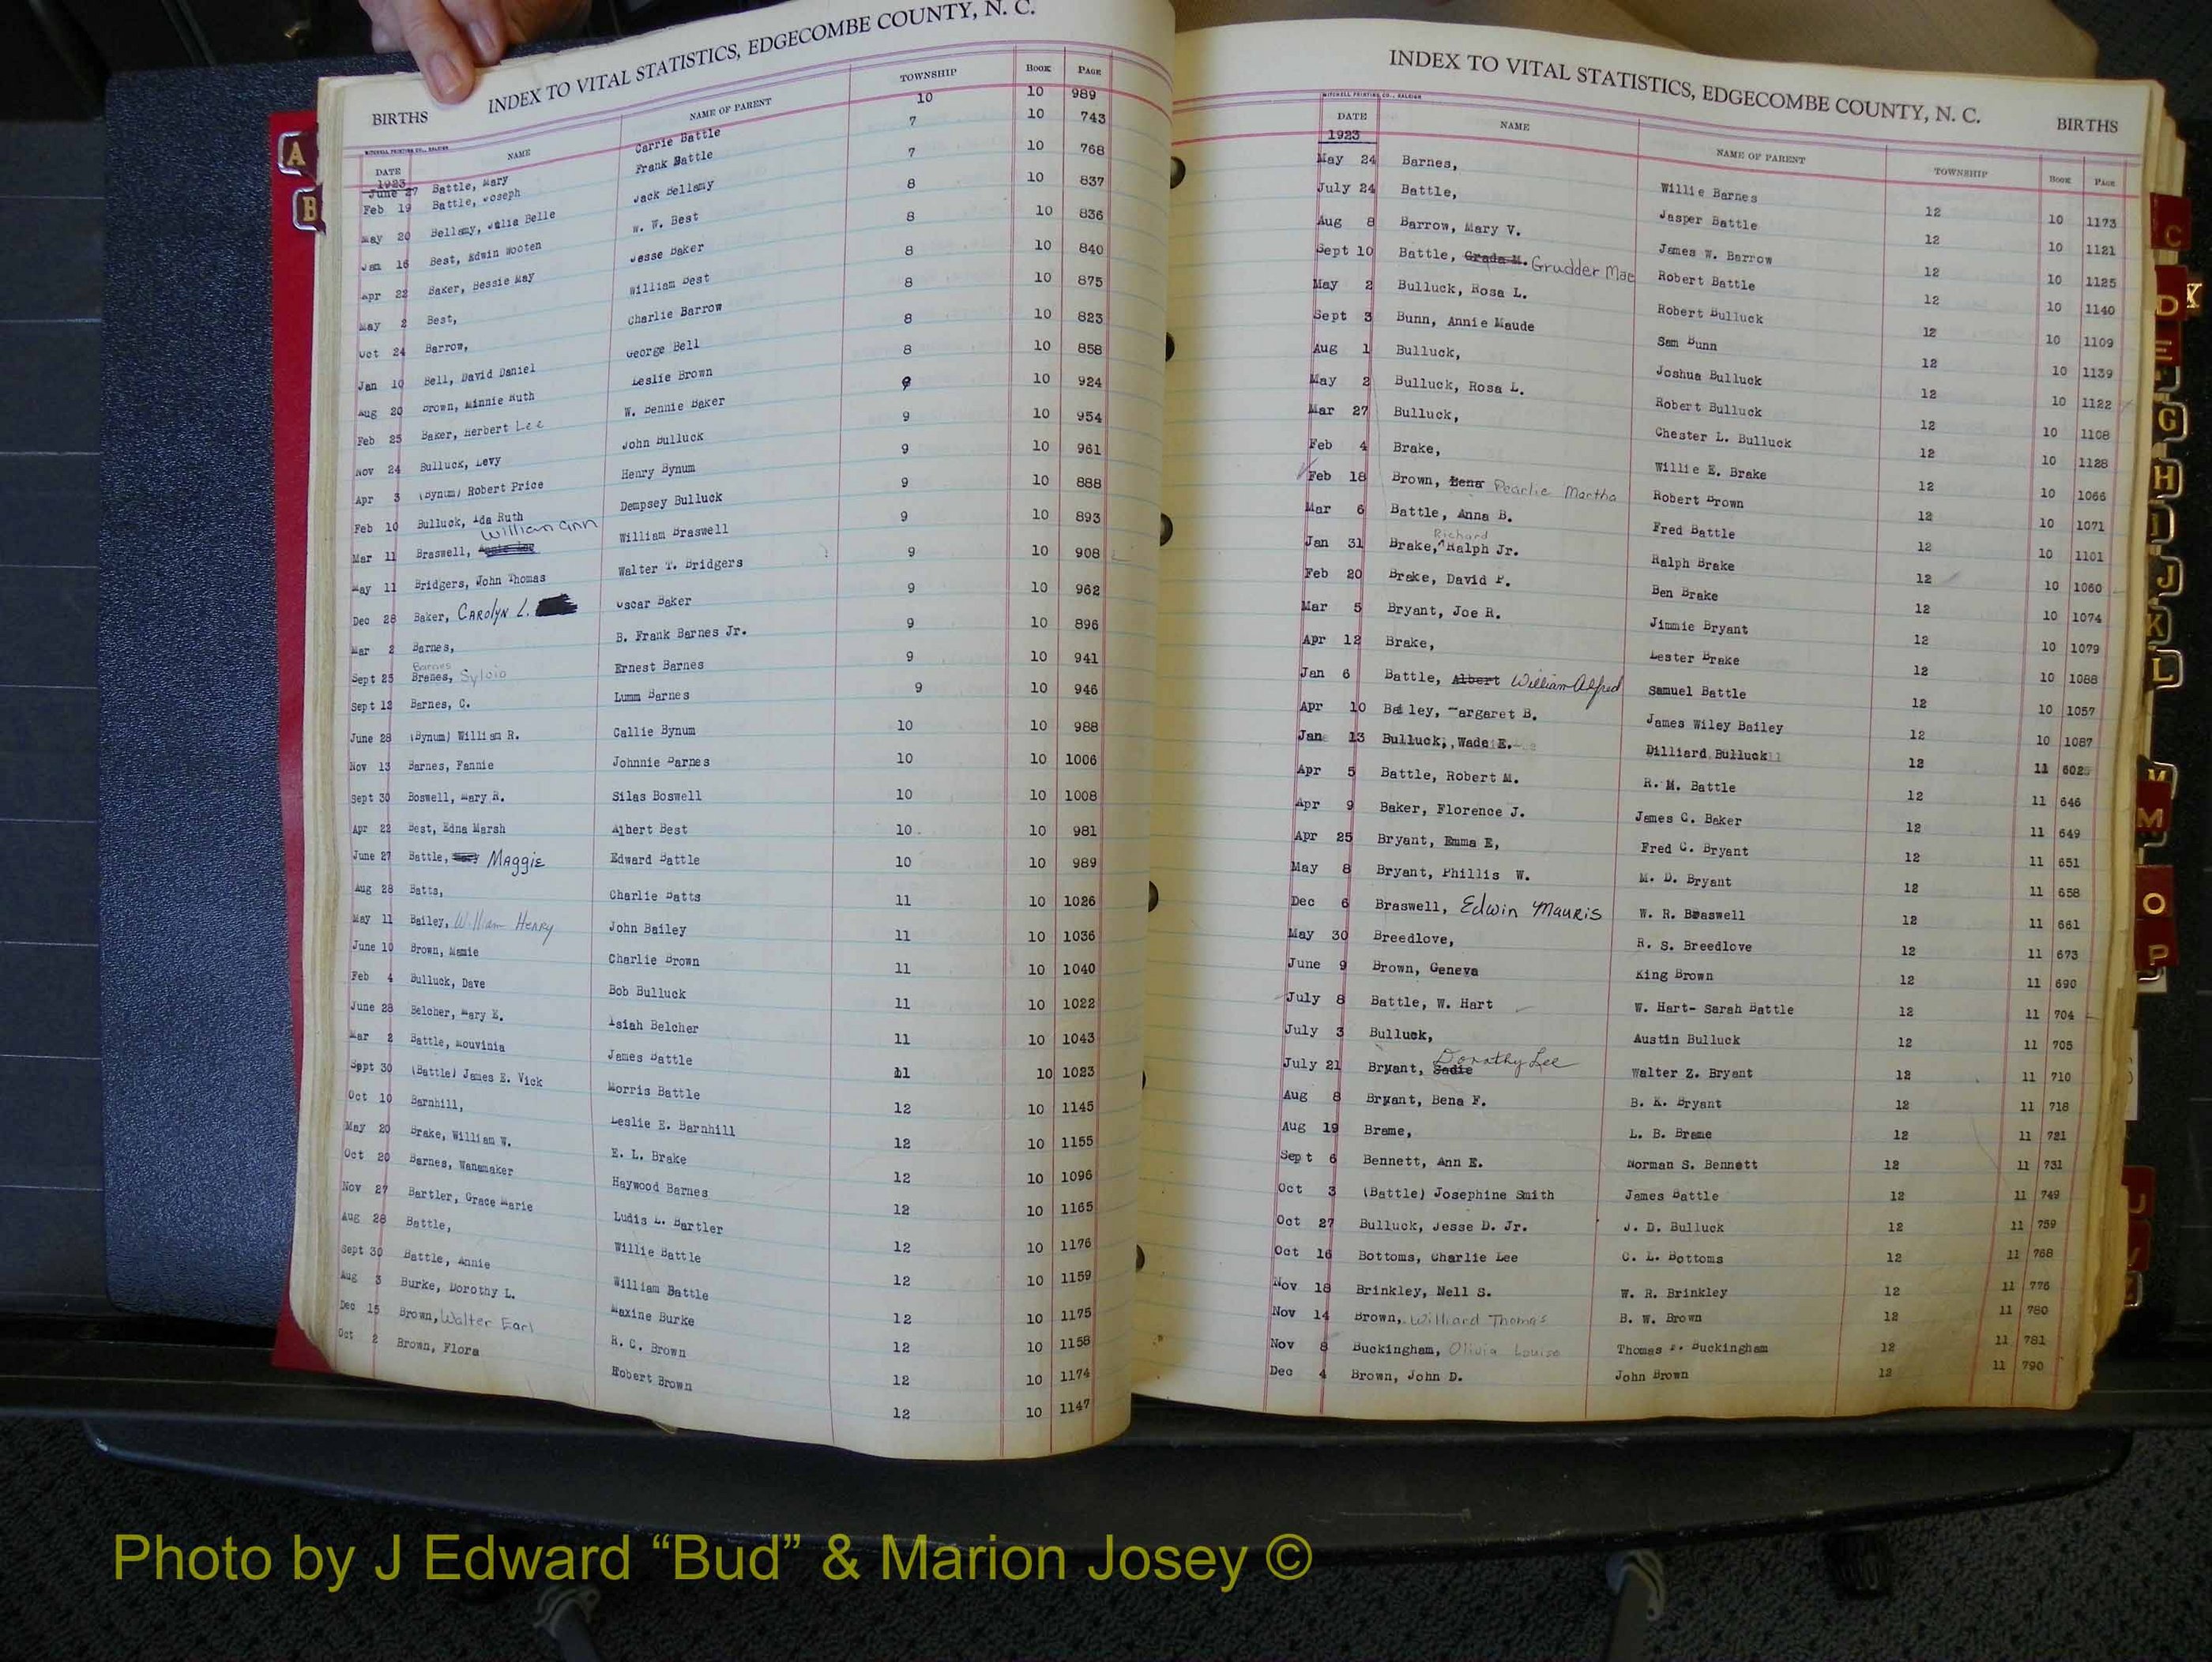 BIRTHS
INDEX TO VITAL STATISTICS, EDGECOMBE COUNTY, N. C.
MITCHELL PRINTING CO., RALEIGH
DATE NAME NAME OF PARENT TOWNSHIP BOOK PAGE
1923
June 27 Battle, Mary Carrie Battle 10 10 989
Feb 19 Battle, Joseph Frank Battle 7 10 743
May 20 Bellamy, Julia Belle Jack Bellamy 7 10 768
Jan 16 Best, Edwin Wooten W. W. Best 8 10 837
Apr 22 Baker, Bessie May Jesse Baker 8 10 836
May 2 Best, William Best 8 10 840
Oct 24 Barrow, Charlie Barrow 8 10 875
Jan 10 Bell, David Daniel George Bell 8 10 823
Aug 20 Brown, Minnie Ruth Leslie Brown 8 10 858
Feb 25 Baker, Herbert Lee W. Bennie Baker 9 10 924
Nov 24 Bulluck, Levy John Bulluck 9 10 954
Apr 3 (Bynum) Robert Price Henry Bynum 9 10 961
Feb 10 Bulluck, Ada Ruth Dempsey Bulluck 9 10 888
Mar 11 Braswell, William Ann William Braswell 9 10 893
May 11 Bridgers, John Thomas Walter T. Bridgers 9 10 908
Dec 28 Baker, Carolyn L. Oscar Baker 9 10 962
Mar 2 Barnes, B. Frank Barnes Jr. 9 10 896
Barnes
Sept 25 Brenes, Sylvia Ernest Barnes 9 10 941
Sept 12 Barnes, C. Lumm Barnes 9 10 946
June 28 (Bynum) William R. Callie Bynum 10 10 988
Nov 13 Barnes, Fannie Johnnie Barnes 10 10 1006
Sept 30 Boswell, Mary R. Silas Boswell 10 10 1008
Apr 22 Best, Edna Marsh Albert Best 10 10 981
June 27 Battle, Mary Maggie Edward Battle 10 10 989
Aug 28 Batts, Charlie Batts 11 10 1026
May 11 Bailey, William Henry John Bailey 11 10 1036
June 10 Brown, Mamie Charlie Brown 11 10 1040
Feb 4 Bulluck, Dave Bob Bulluck 11 10 1022
June 28 Belcher, Mary E. Isiah Belcher 11 10 1043
Mar 2 Battle, Mouvinia James Battle 11 10 1023
Sept 30 (Battle) James E. Vick Morris Battle 12 10 1145
Oct 10 Barnhill, Leslie E. Barnhill 12 10 1155
May 20 Brake, William W. E. L. Brake 12 10 1096
Oct 20 Barnes, Wanamaker Haywood Barnes 12 10 1165
Nov 27 Bartler, Grace Marie Ludis L. Bartler 12 10 1176
Aug 28 Battle, Willie Battle 12 10 1159
Sept 30 Battle, Annie William Battle 12 10 1175
Aug 3 Burke, Dorothy L. Maxine Burke 12 10 1158
Dec 15 Brown, Walter Earl R. C. Brown 12 10 1174
Oct 2 Brown, Flora Robert Brown 12 10 1147
INDEX TO VITAL STATISTICS, EDGECOMBE COUNTY, N. C.
BIRTHS
MITCHELL PRINTING CO., RALEIGH
DATE NAME NAME OF PARENT TOWNSHIP BOOK PAGE
1923
May 24 Barnes, Willie Barnes 12 10 1173
July 24 Battle, Jasper Battle 12 10 1121
Aug 8 Barrow, Mary V. James W. Barrow 12 10 1125
Sept 10 Battle, Grada M. Grudder Mae Robert Battle 12 10 1140
May 2 Bulluck, Rosa L. Robert Bulluck 12 10 1109
Sept 3 Bunn, Annie Maude Sam Bunn 12 10 1139
Aug 1 Bulluck, Joshua Bulluck 12 10 1122
May 2 Bulluck, Rosa L. Robert Bulluck 12 10 1108
Mar 27 Bulluck, Chester L. Bulluck 12 10 1128
Feb 4 Brake, Willie E. Brake 12 10 1066
Feb 18 Brown, Lena Pearlie Martha Robert Brown 12 10 1071
Mar 6 Battle, Anna B. Fred Battle 12 10 1101
Richard
Jan 31 Brake, ^Ralph Jr. Ralph Brake 12 10 1060
Feb 20 Brake, David P. Ben Brake 12 10 1074
Mar 5 Bryant, Joe R. Jimmie Bryant 12 10 1079
Apr 12 Brake, Lester Brake 12 10 1088
Jan 6 Battle, Albert William Alfred Samuel Battle 12 10 1057
Apr 10 Bailey, Margaret B. James Wiley Bailey 12 10 1087
Jan 13 Bulluck, Wade E. Dilliard Bulluck 12 11 602
Apr 5 Battle, Robert M. R. M. Battle 12 11 646
Apr 9 Baker, Florence J. James C. Baker 12 11 649
Apr 25 Bryant, Emma E, Fred C. Bryant 12 11 651
May 8 Bryant, Phillis W. M. D. Bryant 12 11 658
Dec 6 Braswell, Edwin Mauris W. R. Braswell 12 11 661
May 30 Breedlove, R. S. Breedlove 12 11 673
June 9 Brown, Geneva King Brown 12 11 690
July 8 Battle, W. Hart W. Hart- Sarah Battle 12 11 704
July 3 Bulluck, Austin Bulluck 12 11 705
July 21 Bryant, Sadie Dorothy Lee Walter Z. Bryant 12 11 710
Aug 8 Bryant, Bena F. B. K. Bryant 12 11 718
Aug 19 Brame, L. B. Brame 12 11 721
Sept 6 Bennett, Ann E. Norman S. Bennett 12 11 731
Oct 3 (Battle) Josephine Smith James Battle 12 11 749
Oct 27 Bulluck, Jesse D. Jr. J. D. Bulluck 12 11 759
Oct 16 Bottoms, Charlie Lee C. L. Bottoms 12 11 768
Nov 18 Brinkley, Nell S. W. R. Brinkley 12 11 776
Nov 14 Brown, Williard Thomas B. W. Brown 12 11 780
Nov 8 Buckingham, Olivia Louise Thomas Buckingham 12 11 781
Dec 4 Brown, John D. John Brown 12 11 790
A
B
C
D
E
G
H
I
J
K
L
M
M
O
P
U
V
Photo by J Edward “Bud” & Marion Josey ©